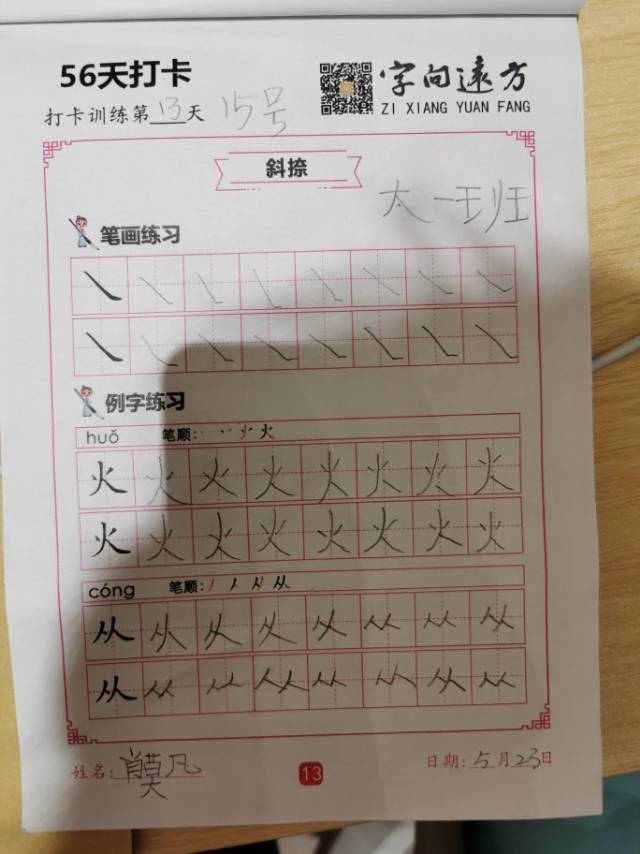 56天打卡
字向远方
打卡训练第13天 15号
ZI XIANG YUAN FANG
斜捺
太一班
笔画练习
例字练习
huǒ 笔顺: 火
火 火 火 火 火 火 火 火
火 火 火 火 火 火 火 火
cóng 笔顺: 丿 人 从 从
从 从 从 从 从 从 从 从
从 从 从 从 从 从 从 从
姓名: 凡
13
日期: 5月23日